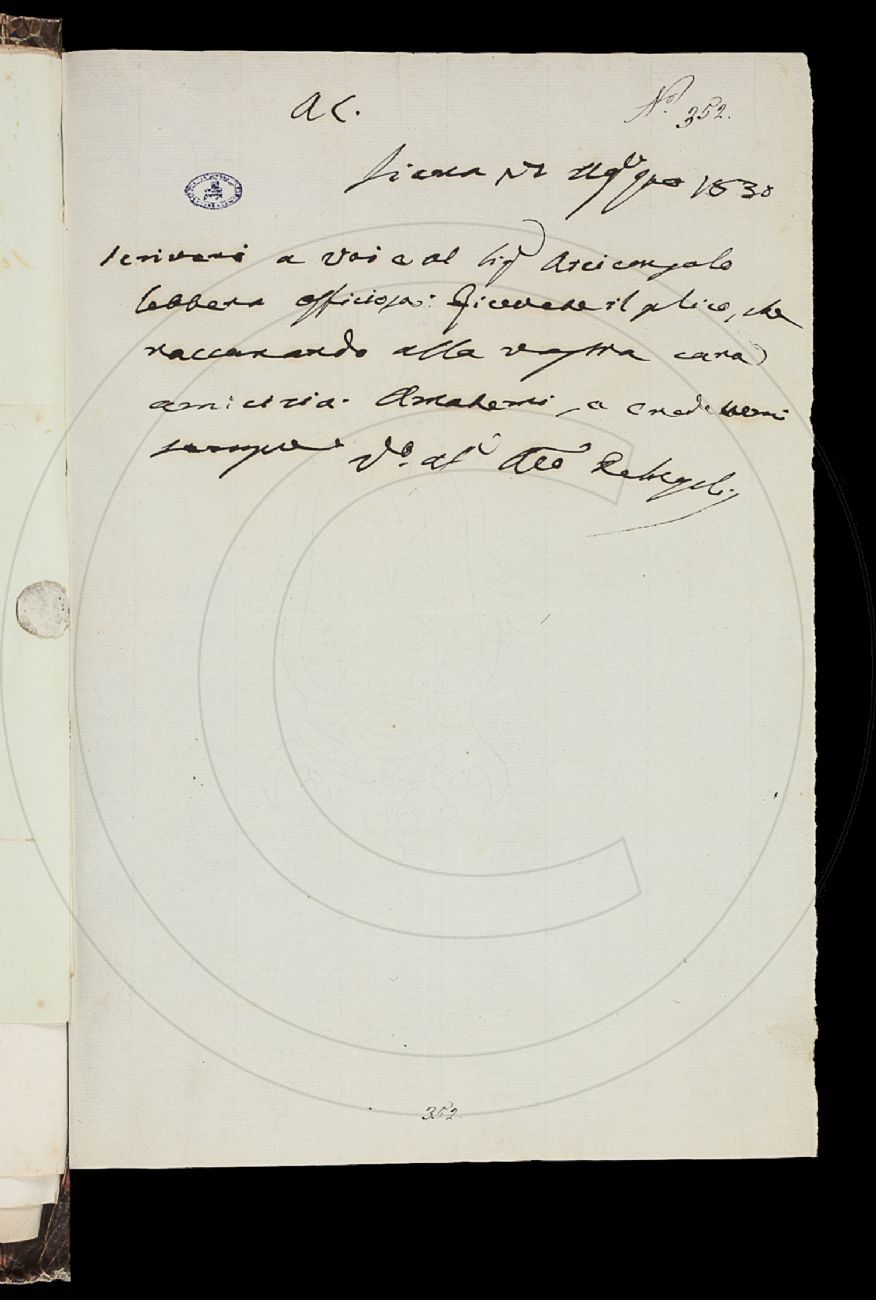 A C.
N.o 352.
Siena 1830
scrivere a voi e al Sig.r Arcicongolo
lettera officiosa: Ricevete il plico, che
raccomando alla vostra cara
amicizia. Amatemi, e credetemi
sempre
V.o af
352.